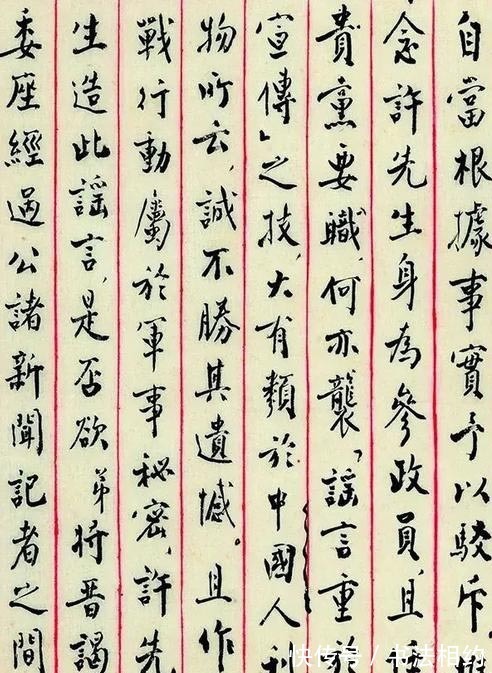 自當根據事實予以駁斥
念許先生身為參政員,且
貴黨要職,何亦襲「謠言重於
宣傳」之技,大有類於中國人
物所云,誠不勝其遺憾。且作
戰行動屬於軍事秘密,許先
生造此謠言,是否欲弟將晉謁
委座經過公諸新聞記者之間
快传号/书法相约